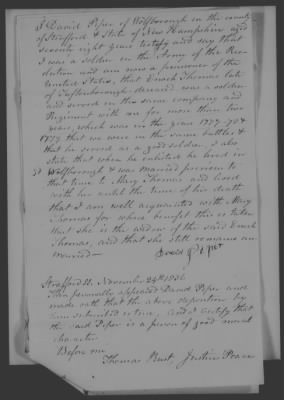 I David Piper of Wolfborough in the county
of Strafford & State of New Hampshire aged
seventy eight years testify and say that
I was a soldier in the Army of the Rev-
olution and am now a pensioner of the
United States, that Enoch Thomas late
of Tuftonborough deceased was a soldier
and served in the same company and
Regiment with me for more than two
years, which was in the years 1777-78 &
1779 that we were in the same battles &
that he served as a good soldier. I also
state that when he enlisted he lived in
Wolfborough & was married previous to
that time to Mary Thomas and lived
with her until the time of his death
that I am well acquainted with Mary
Thomas for whose benefit this is taken
that she is the widow of the said Enoch
Thomas, and that she still remains un-
married—
David Piper
Strafford ss. November 24th 1836
Then personally appeared David Piper and
made oath that the above deposition by
him subscribed is true, and I certify that
the said Piper is a person of good moral
character.
Before me
Thomas Rust, Justice Peace